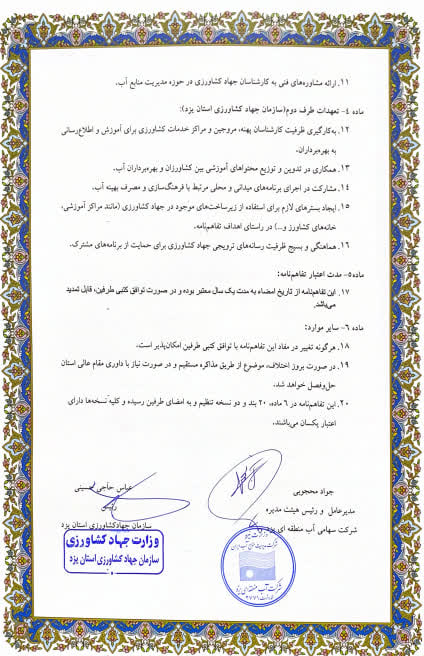 ۱۱. ارائه مشاوره‌های فنی به کارشناسان جهاد کشاورزی در حوزه مدیریت منابع آب.
ماده ۴- تعهدات طرف دوم(سازمان جهاد کشاورزی استان یزد):
۱۲. به‌کارگیری ظرفیت کارشناسان پهنه، مروجین و مراکز خدمات کشاورزی برای آموزش و اطلاع‌رسانی
به بهره‌برداران.
۱۳. همکاری در تدوین و توزیع محتواهای آموزشی بین کشاورزان و بهره‌برداران آب.
۱۴. مشارکت در اجرای برنامه‌های میدانی و محلی مرتبط با فرهنگ‌سازی و مصرف بهینه آب.
۱۵. ایجاد بسترهای لازم برای استفاده از زیرساخت‌های موجود در جهاد کشاورزی (مانند مراکز آموزشی،
خانه‌های کشاورز و...) در راستای اهداف تفاهم‌نامه.
۱۶. هماهنگی و بسیج ظرفیت رسانه‌های ترویجی جهاد کشاورزی برای حمایت از برنامه‌های مشترک.
ماده۵- مدت اعتبار تفاهم‌نامه:
۱۷. این تفاهم‌نامه از تاریخ امضاء به مدت یک سال معتبر بوده و در صورت توافق کتبی طرفین، قابل تمدید
می‌باشد.
ماده ۶- سایر موارد:
۱۸. هرگونه تغییر در مفاد این تفاهم‌نامه با توافق کتبی طرفین امکان‌پذیر است.
۱۹. در صورت بروز اختلاف، موضوع از طریق مذاکره مستقیم و در صورت نیاز با داوری مقام عالی استان
حل‌وفصل خواهد شد.
۲۰. این تفاهم‌نامه در ۶ ماده، ۲۰ بند و دو نسخه تنظیم و به امضای طرفین رسیده و کلیه نسخه‌ها دارای
اعتبار یکسان می‌باشند.
جواد محجوبی
مدیرعامل و رئیس هیئت مدیره
شرکت سهامی آب منطقه ای یزد
عباس حاجی حسینی
رئیس
سازمان جهادکشاورزی استان یزد
وزارت جهاد کشاورزی
سازمان جهاد کشاورزی استان یزد
وزارت نیرو
شرکت مدیریت منابع آب ایران
شرکت آب منطقه‌ای یزد